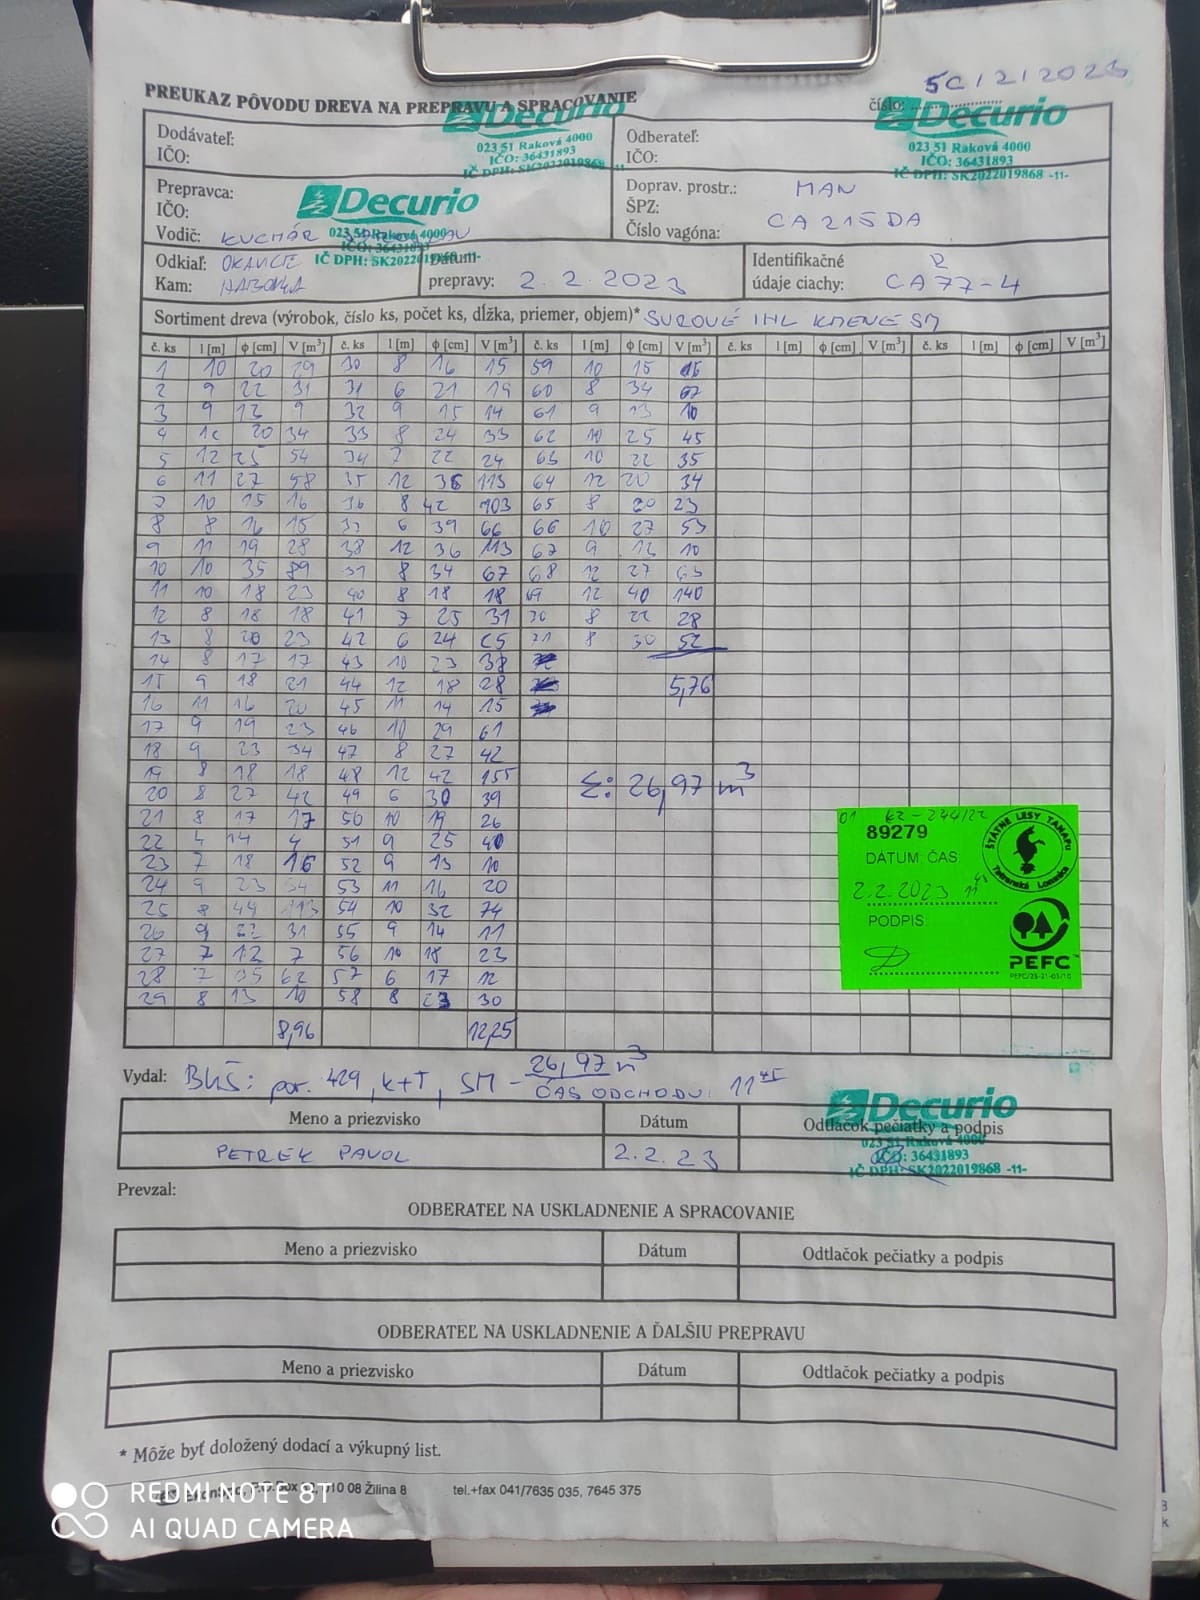 5C/2/2023
PREUKAZ PÔVODU DREVA NA PREPRAVU A SPRACOVANIE
číslo:
Decurio
023 51 Raková 4000
IČO: 36431893
IČ DPH: SK2022019868 -11-
Decurio
023 51 Raková 4000
IČO: 36431893
IČ DPH: SK2022019868 -11-
Dodávateľ:
IČO:
Odberateľ:
IČO:
Prepravca:
IČO:
Vodič: KUCHÁR
Decurio
023 51 Raková 4000
IČO: 36431893
IČ DPH: SK2022019868 -11-
Doprav. prostr.: MAN
ŠPZ:
Číslo vagóna: CA 215 DA
Odkiaľ:
Kam:
Dátum
prepravy: 2.2.2023
Identifikačné
údaje ciachy: CA77-4
Sortiment dreva (výrobok, číslo ks, počet ks, dĺžka, priemer, objem)* SUROVÉ IHL KMENE SM
č. ks l [m] ϕ [cm] V [m³] č. ks l [m] ϕ [cm] V [m³] č. ks l [m] ϕ [cm] V [m³] č. ks l [m] ϕ [cm] V [m³] č. ks l [m] ϕ [cm] V [m³]
1 10 20 29 30 8 16 15 59 10 15
2 9 22 31 31 6 21 19 60 8 34 67
3 9 13 9 32 9 15 14 61 9 13 10
4 20 34 33 8 24 33 62 10 25 45
5 12 25 54 34 7 22 24 63 10 22 35
6 11 27 58 35 12 36 113 64 12 20 34
7 10 15 16 36 8 42 103 65 8 20 23
8 8 16 15 37 6 39 66 66 10 27 53
9 11 19 28 38 12 36 113 67 9 13 10
10 10 35 89 39 8 34 67 68 12 27 63
11 10 18 23 40 8 18 18 69 12 40 140
12 8 18 18 41 7 25 31 70 8 22 28
13 8 20 23 42 6 24 25 71 8 30 52
14 8 17 17 43 10 23 38
15 9 18 21 44 12 18 28 5,76
16 11 16 20 45 11 14 15
17 9 19 23 46 10 29 61
18 9 23 34 47 8 27 42
19 8 18 18 48 12 42 155 Σ: 26,97 m³
20 8 27 42 49 6 30 39
21 8 17 17 50 10 19 26
22 4 14 4 51 9 25 40
23 7 18 16 52 9 13 10
24 9 23 34 53 11 16 20
25 8 44 113 54 10 32 74
26 9 22 31 55 9 14 11
27 7 12 7 56 10 18 23
28 7 35 62 57 6 17 12
29 8 13 10 58 8 23 30
8,96 12,25
01 62-244/22
89279
DÁTUM: ČAS
2.2.2023 11 45
PODPIS:
ŠTÁTNE LESY TANAPu
Tatranská Lomnica
PEFC
PEFC/23-21-03/10
Vydal: BHŠ: por. 429, K+T, SM - 26,97 m³
ČAS ODCHODU: 11 45
Meno a priezvisko Dátum Odtlačok pečiatky a podpis
PETREK PAVOL 2.2.23
Decurio
023 51 Raková 4000
IČO: 36431893
IČ DPH: SK2022019868 -11-
Prevzal:
ODBERATEĽ NA USKLADNENIE A SPRACOVANIE
Meno a priezvisko Dátum Odtlačok pečiatky a podpis
ODBERATEĽ NA USKLADNENIE A ĎALŠIU PREPRAVU
Meno a priezvisko Dátum Odtlačok pečiatky a podpis
* Môže byť doložený dodací a výkupný list.
010 08 Žilina 8 tel.+fax 041/7635 035, 7645 375
REDMI NOTE 8T
AI QUAD CAMERA